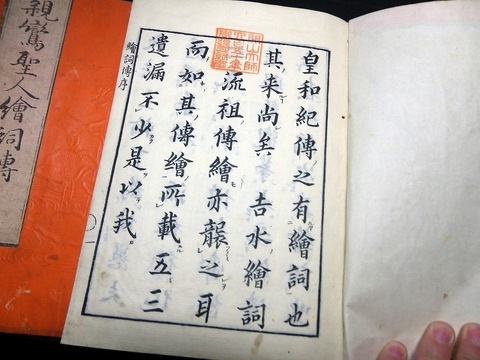 皇和紀傳之有繪詞也
其来尚矣 吉水繪詞
流祖傳繪亦襲之耳
而如其傳繪所載五三
遺漏不少是以我
繪詞傳序
親鸞聖人繪詞傳